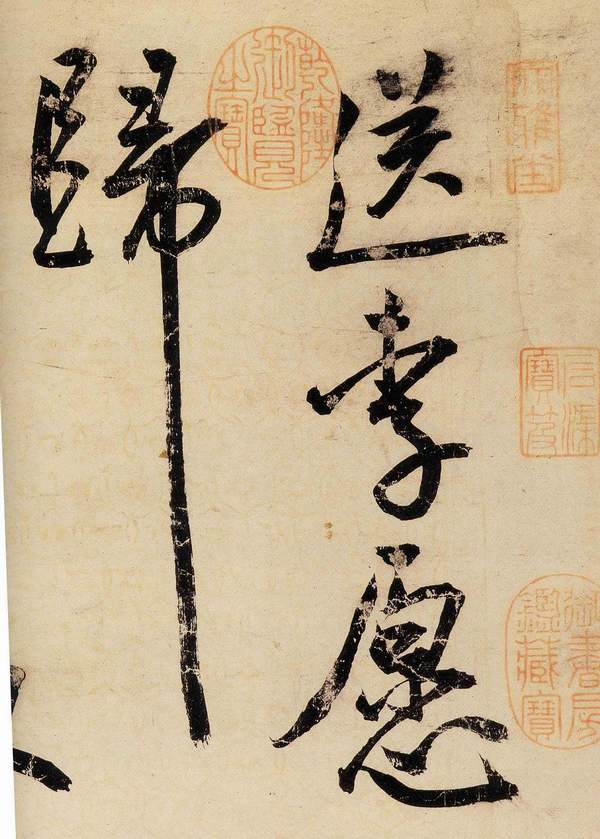 送李愿
歸
乾隆御覽之寶
御書房鑑藏寶